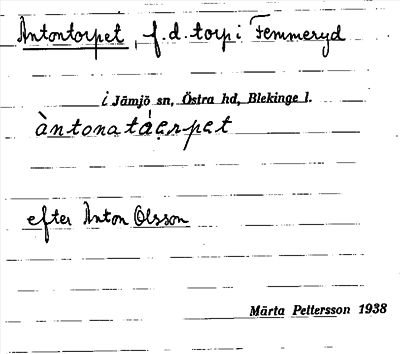 Antontorpet, f.d. torp i Femmeryd
i Jämjö sn, Östra hd, Blekinge l.
àntonatáerpet
efter Anton Olsson
Märta Pettersson 1938